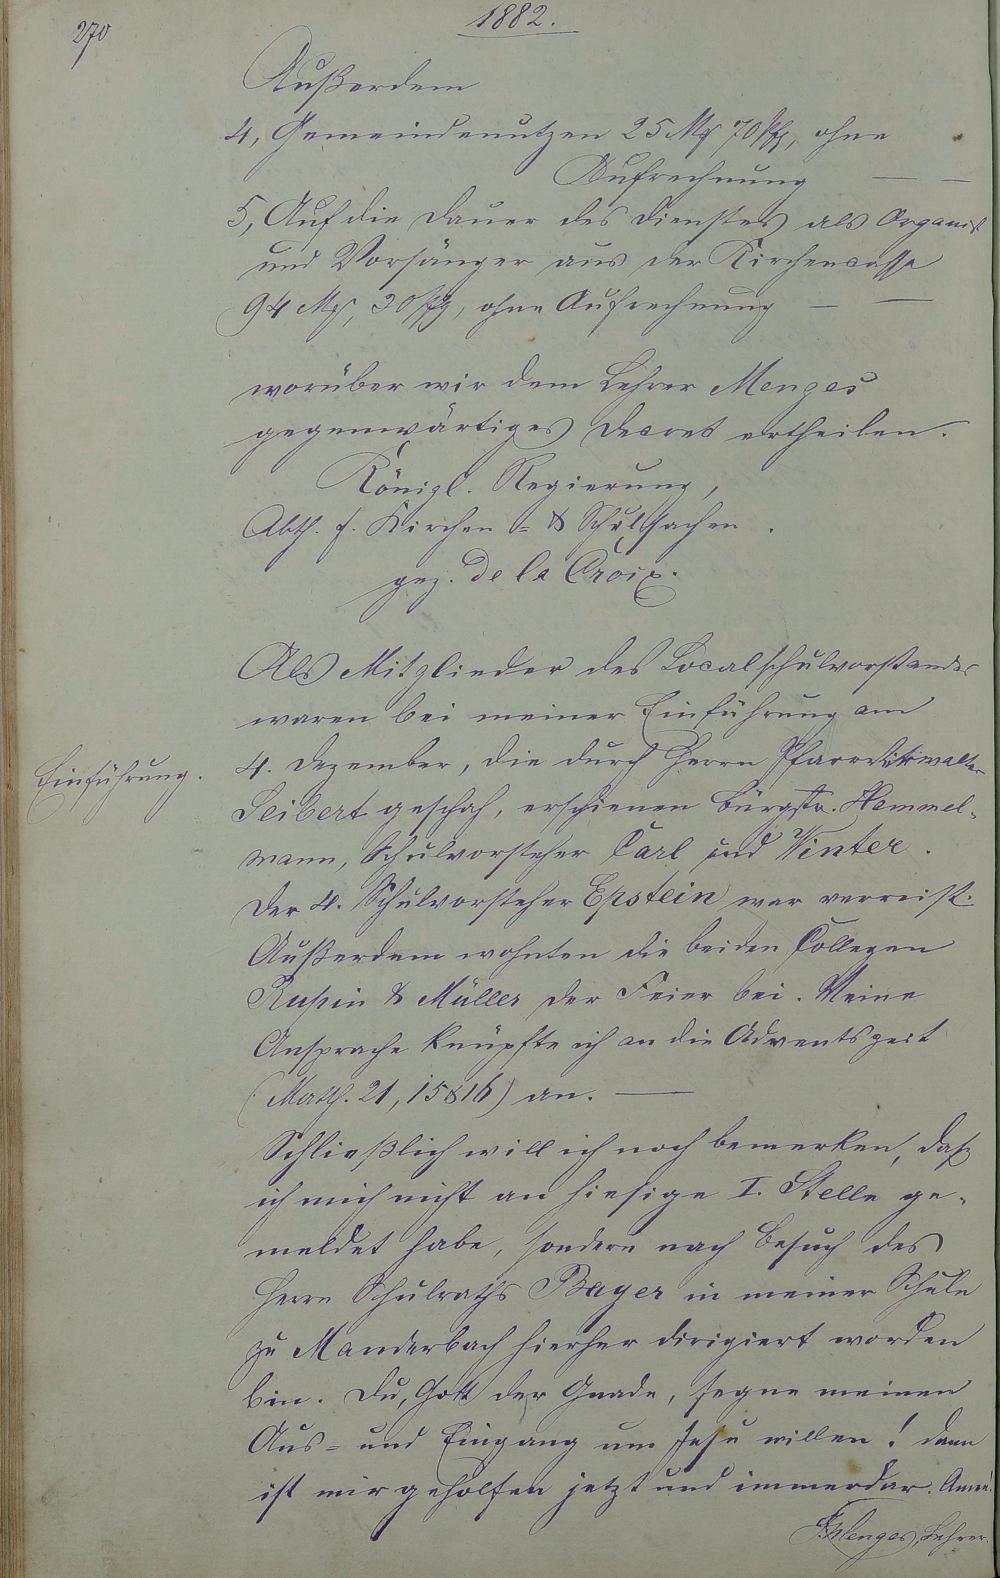 270
1882.
Außerdem
4, Gemeindenutzen 25 Mk 70 Pfg, ohne
Aufrechnung — —
5, Auf die Dauer des Dienstes als Organist
und Vorsänger aus der Kirchencasse
94 Mk, 30 Pfg, ohne Aufrechnung — —
worüber wir dem Lehrer Menges
gegenwärtiges Decret ertheilen.
Königl. Regierung,
Abth. f. Kirchen- & Schulsachen.
gez. de la Croix.
Als Mitglieder des Localschulvorstandes
waren bei meiner Einführung am
Einführung.
4. Dezember, die durch Herrn Pfarrvikar
Seibert geschah, erschienen Bürgstr. Hemmel-
mann, Schulvorsteher Carl und Winter.
Der 4. Schulvorsteher Epstein war verreist.
Außerdem wohnten die beiden Collegen
Rupin & Müller der Feier bei. Meine
Ansprache knüpfte ich an die Adventszeit
(Matth. 21, 15 & 16) an. —
Schließlich will ich noch bemerken, daß
ich mich nicht an hiesige I. Stelle ge-
meldet habe, sondern nach Besuch des
Herrn Schulraths Bayer in meiner Schule
zu Manderbach hierher dirigiert worden
bin. Du, Gott der Gnade, segne meinen
Aus- und Eingang um Jesu willen! dann
ist mir geholfen jetzt und immerdar. Amen!
Menges, Lehrer.